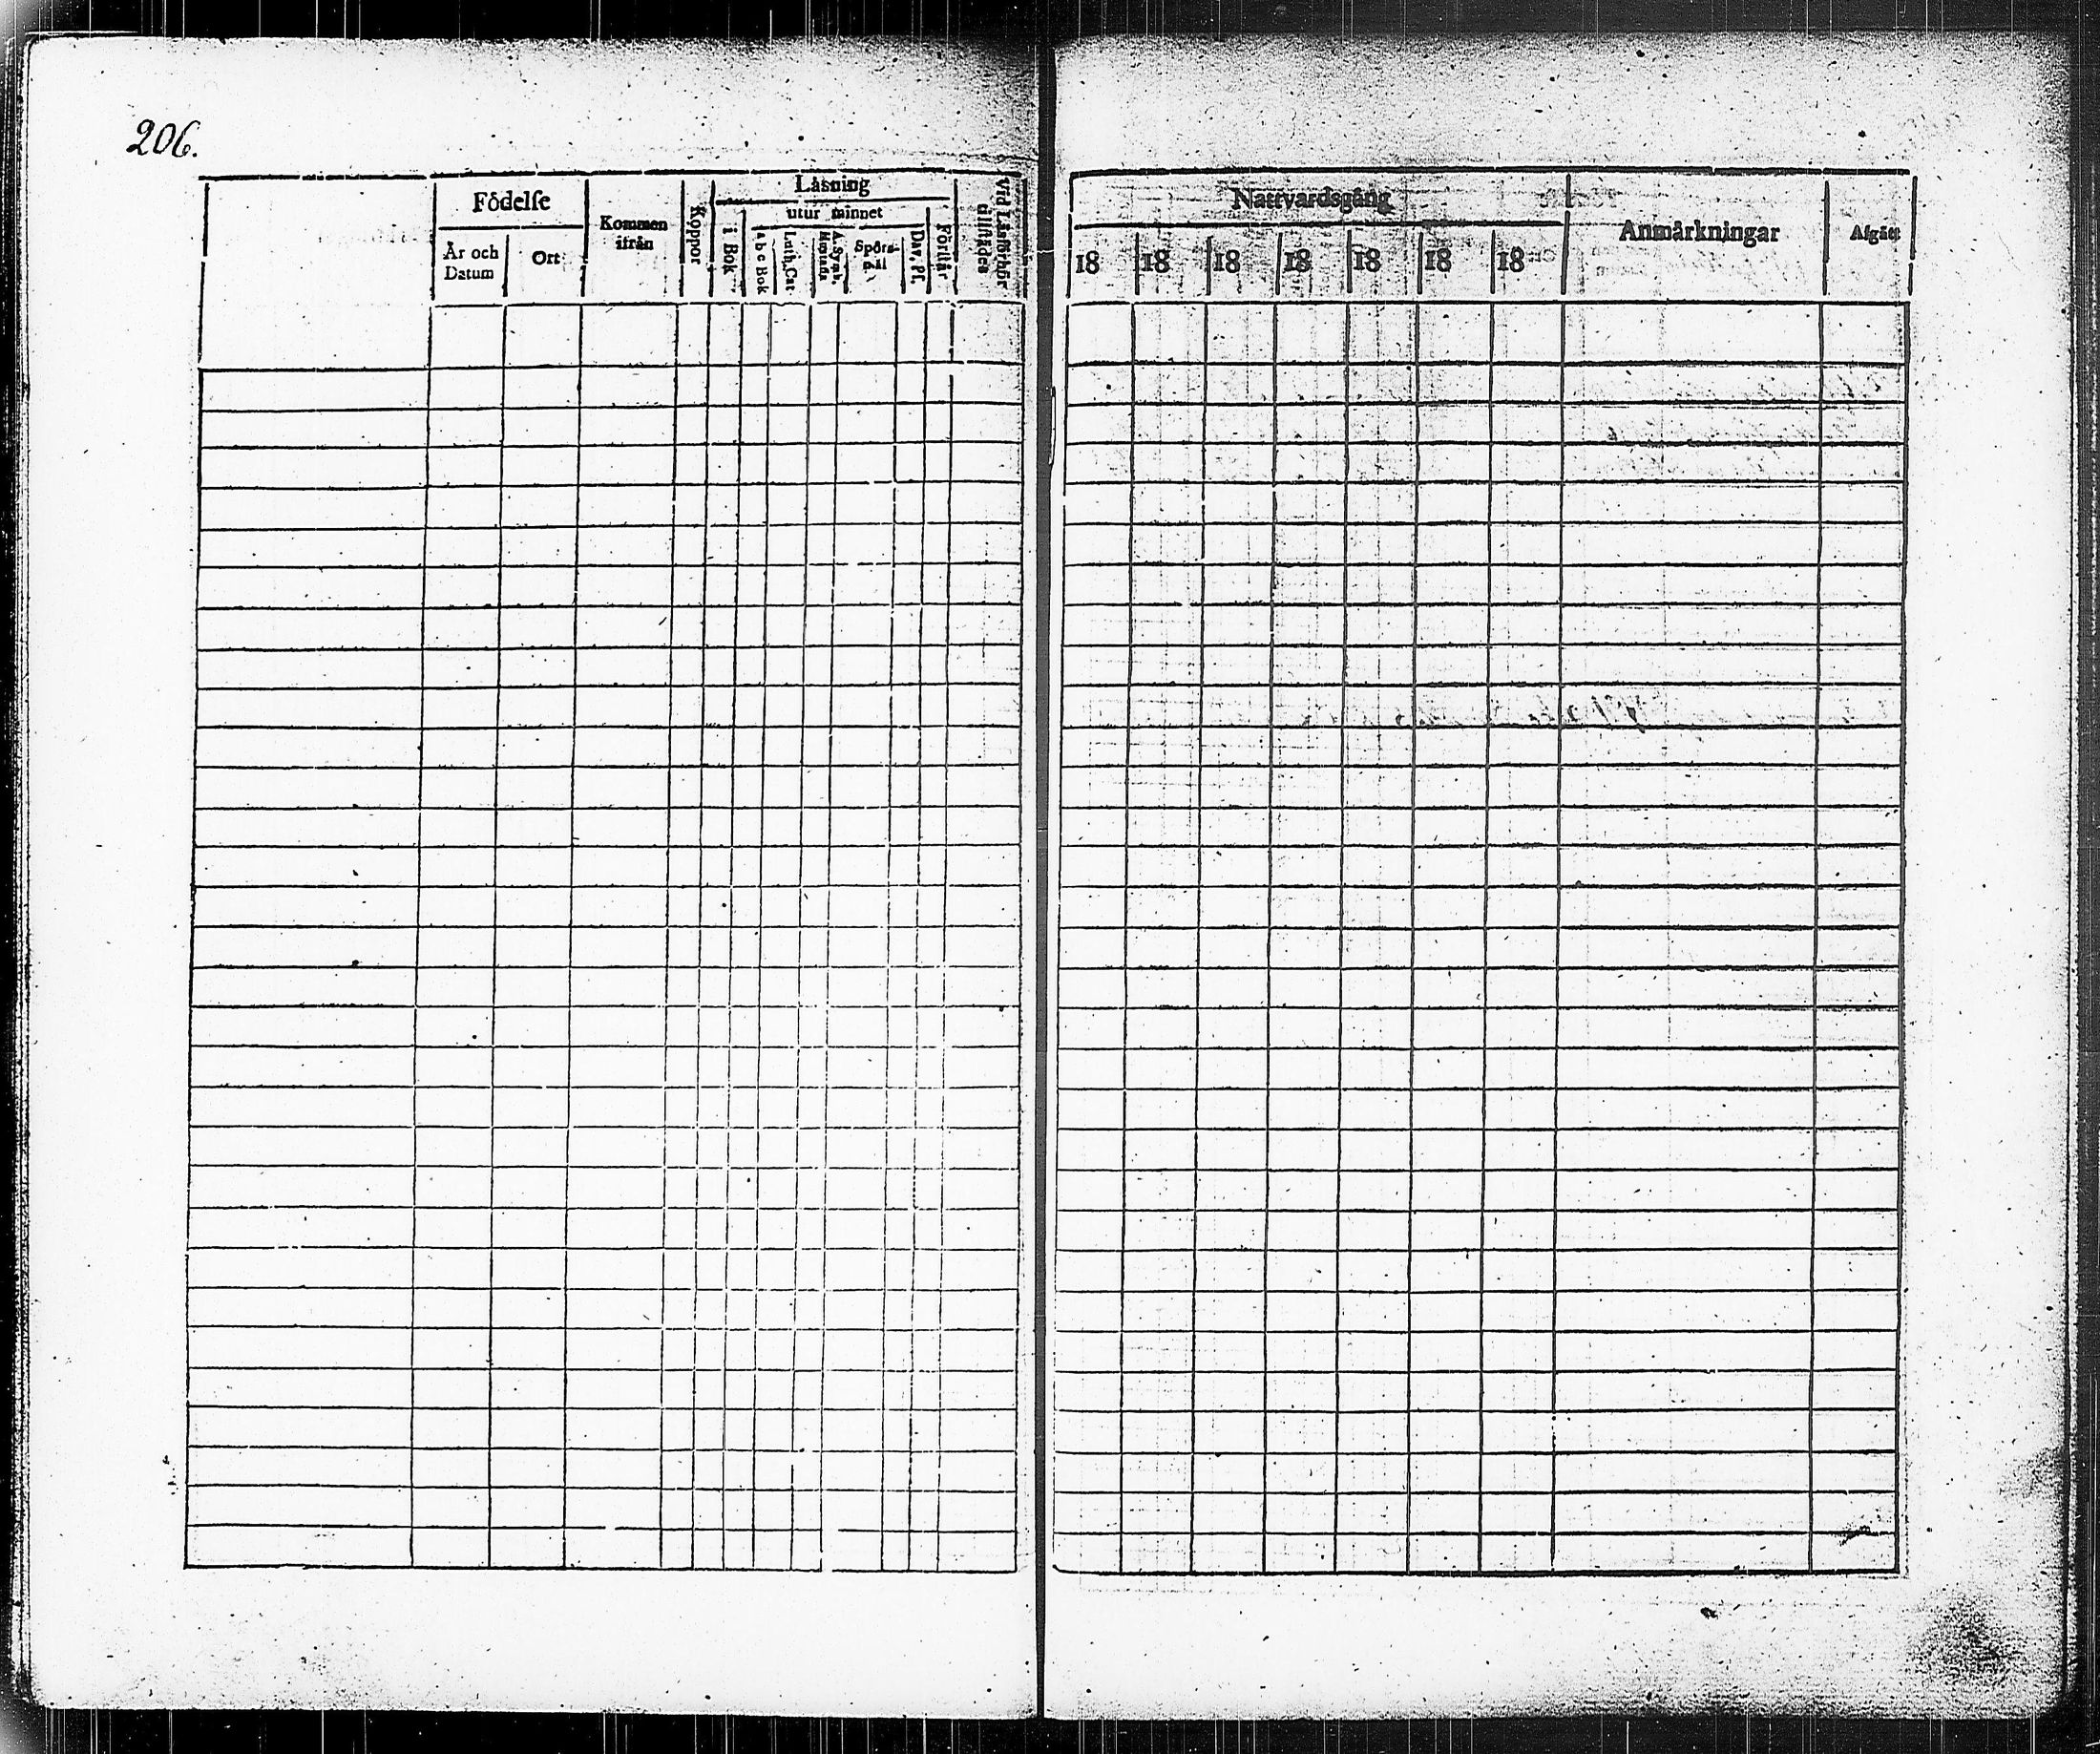 206.
Födelse
År och Datum
Ort
Kommen ifrån
Koppor
Läsning
i Bok
utur minnet
a b c Bok
Luth. Cat
A. Symb.
Spörs-
mål
Dav. Pf.
Förstår
Vid Läsförhör
tilstådes
Nattvardsgång
18 18 18 18 18 18 18
Anmärkningar
Afgått